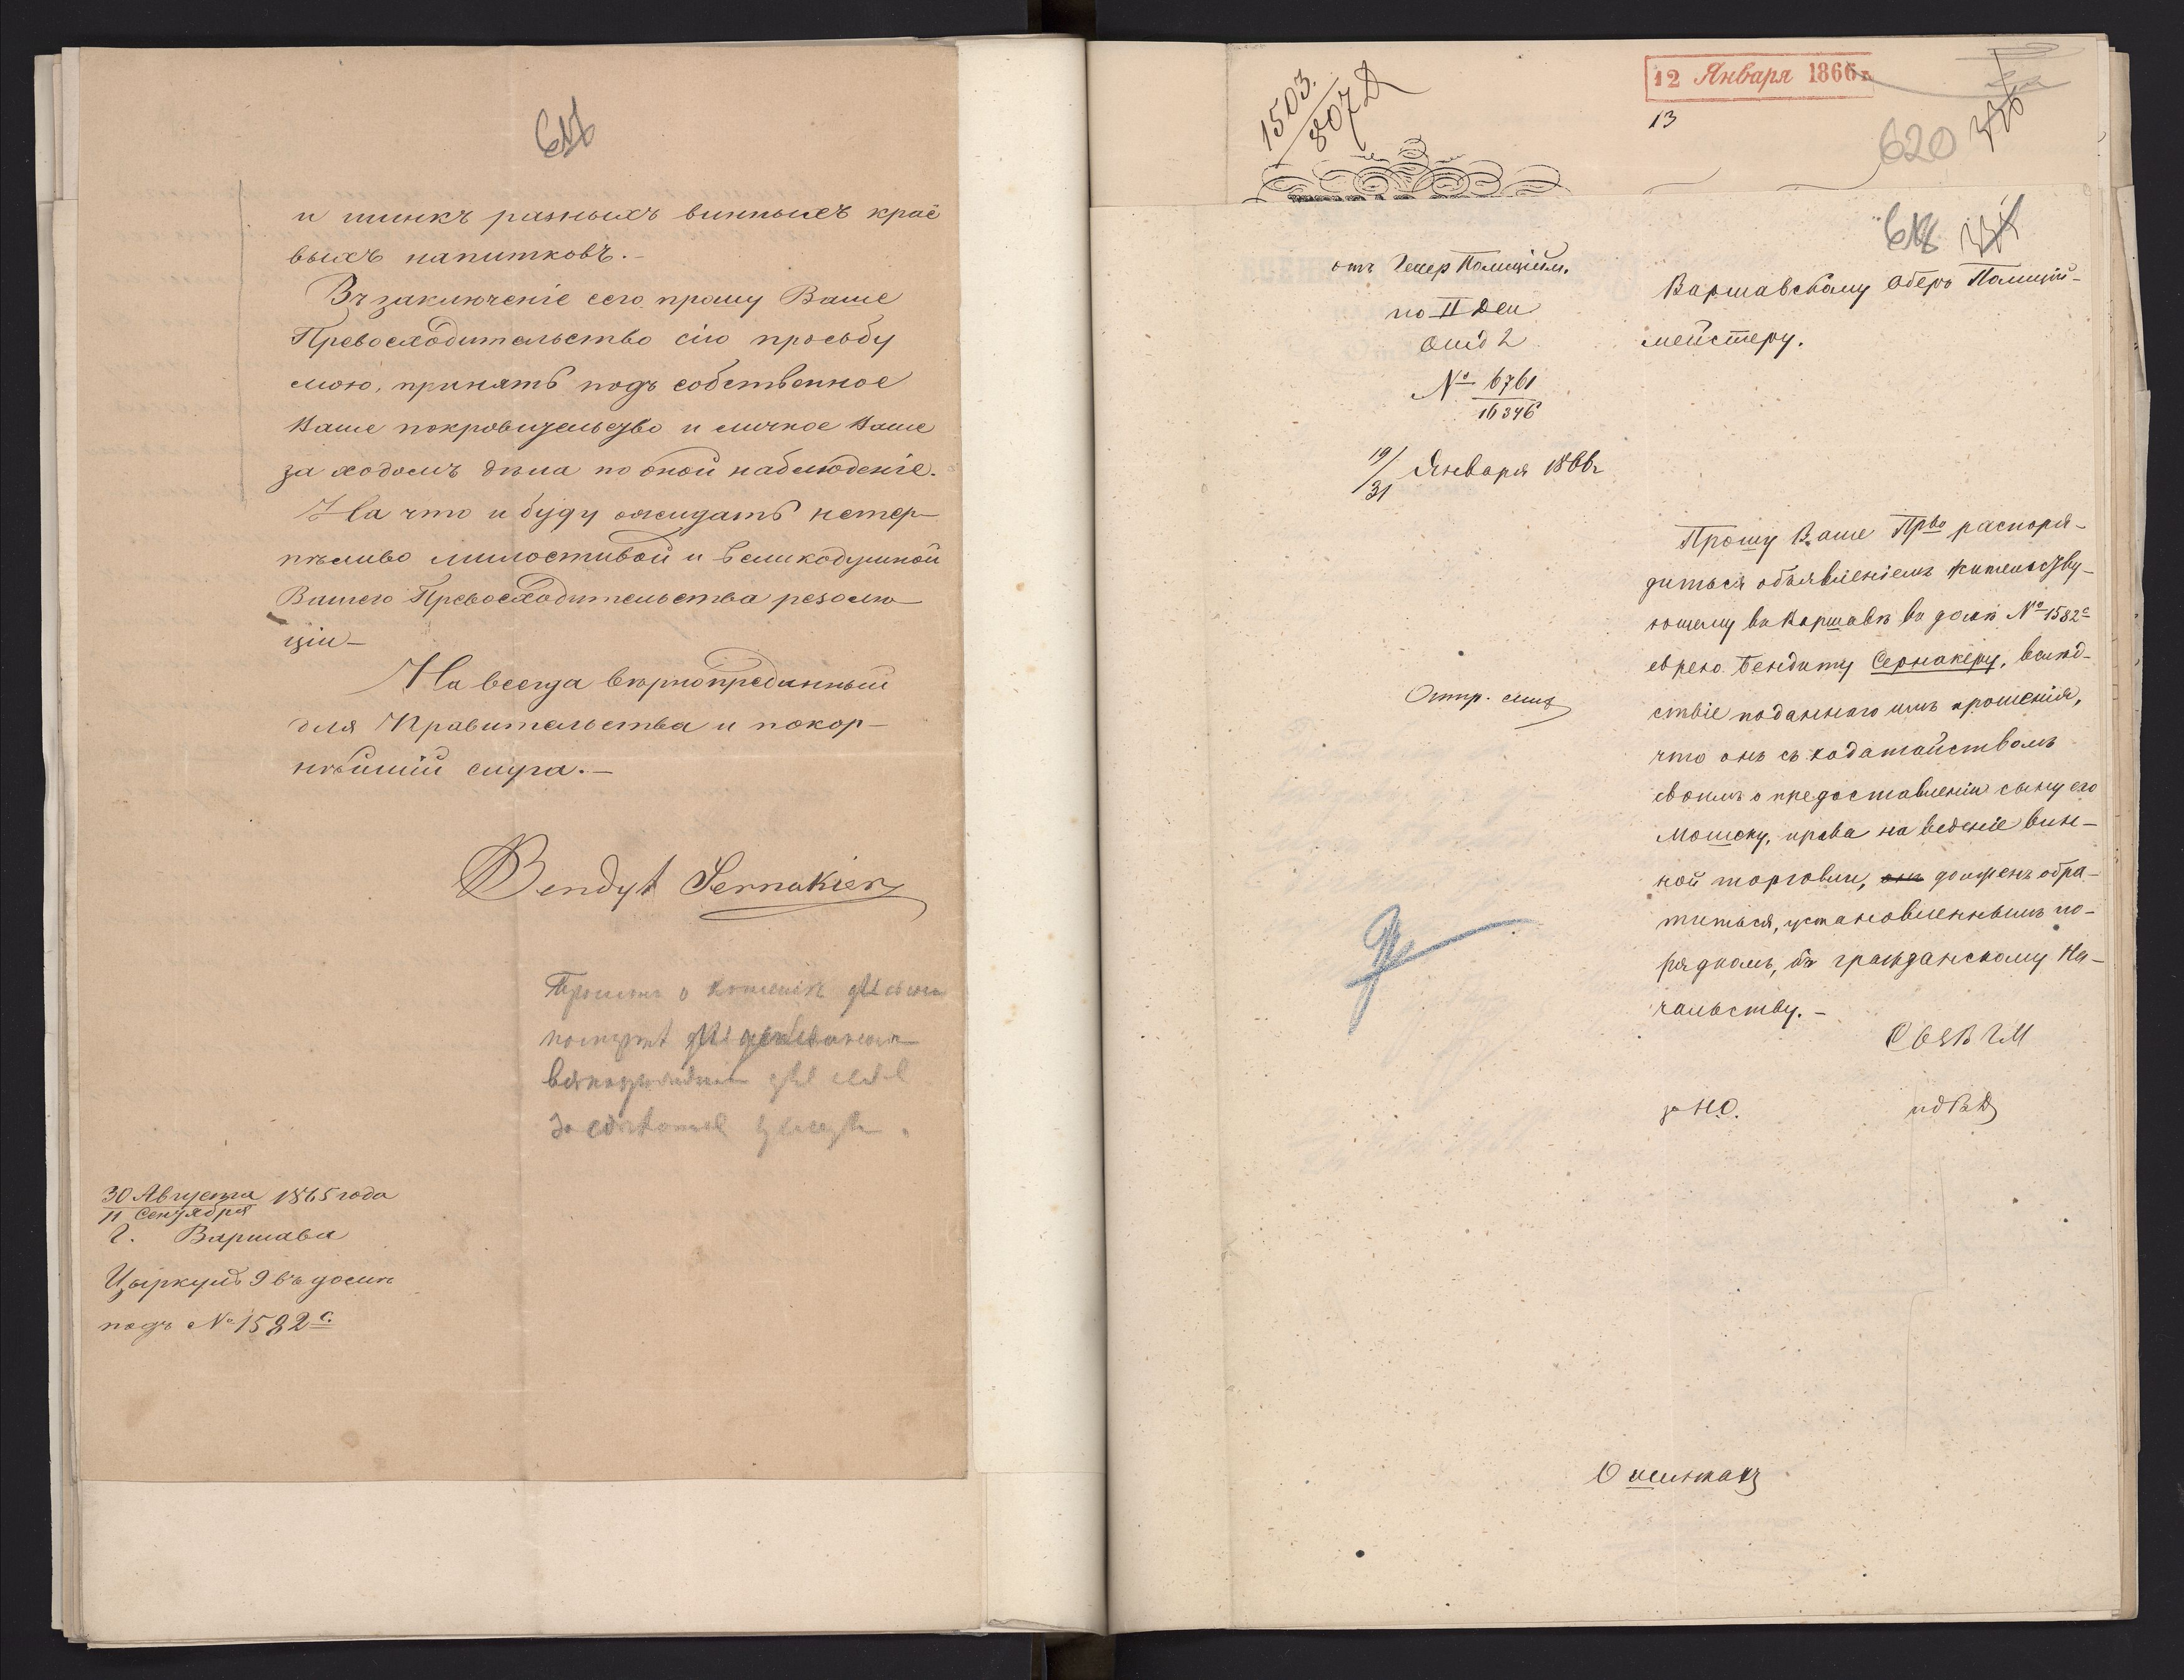 и шинкъ разныхъ винныхъ крас
выхъ напитковъ.-
Въ заключеніе сего прошу Ваше
Превосходительство сію просьбу
мою, принять подъ собственное
Ваше покровительство и личное Ваше
за ходомъ дѣла по оной наблюденіе.
На что и буду ожидать нетер-
пѣливо милостивой и великодушной
Вашего Превосходительства резолю-
ціи-
На всегда вѣрнопреданный
для Правительства и покор-
нѣйшій слуга.-
Bendyt Sernakier
30 Августа 1865 года
11 Сентября
Г. Варшава
Цыркулъ 9 въ домѣ
подъ № 1582 c.
1503.
807
12 Января 1866 г.
13
620
618
отъ Генер Полиційм.
по II Деп
Отд 2
№ 6761
16346
19/31 Января 1866 г
Отпр.
Варшавскому Оберъ Полицій-
мейстеру.
Прошу Ваше Прво распоря-
диться объявленіемъ жительству-
ющему въ Варшавѣ въ домѣ № 1582 c
еврею Бендиту Сернакеру, вслѣд-
ствіе поданнаго имъ прошенія,
что онъ съ ходатайствомъ
своимъ о предоставленіи сыну его
Мошску, права на веденіе вин-
ной торговли, онъ долженъ обра-
титься, установленнымъ по-
рядкомъ, къ гражданскому На-
чальству.-
за Н.О.